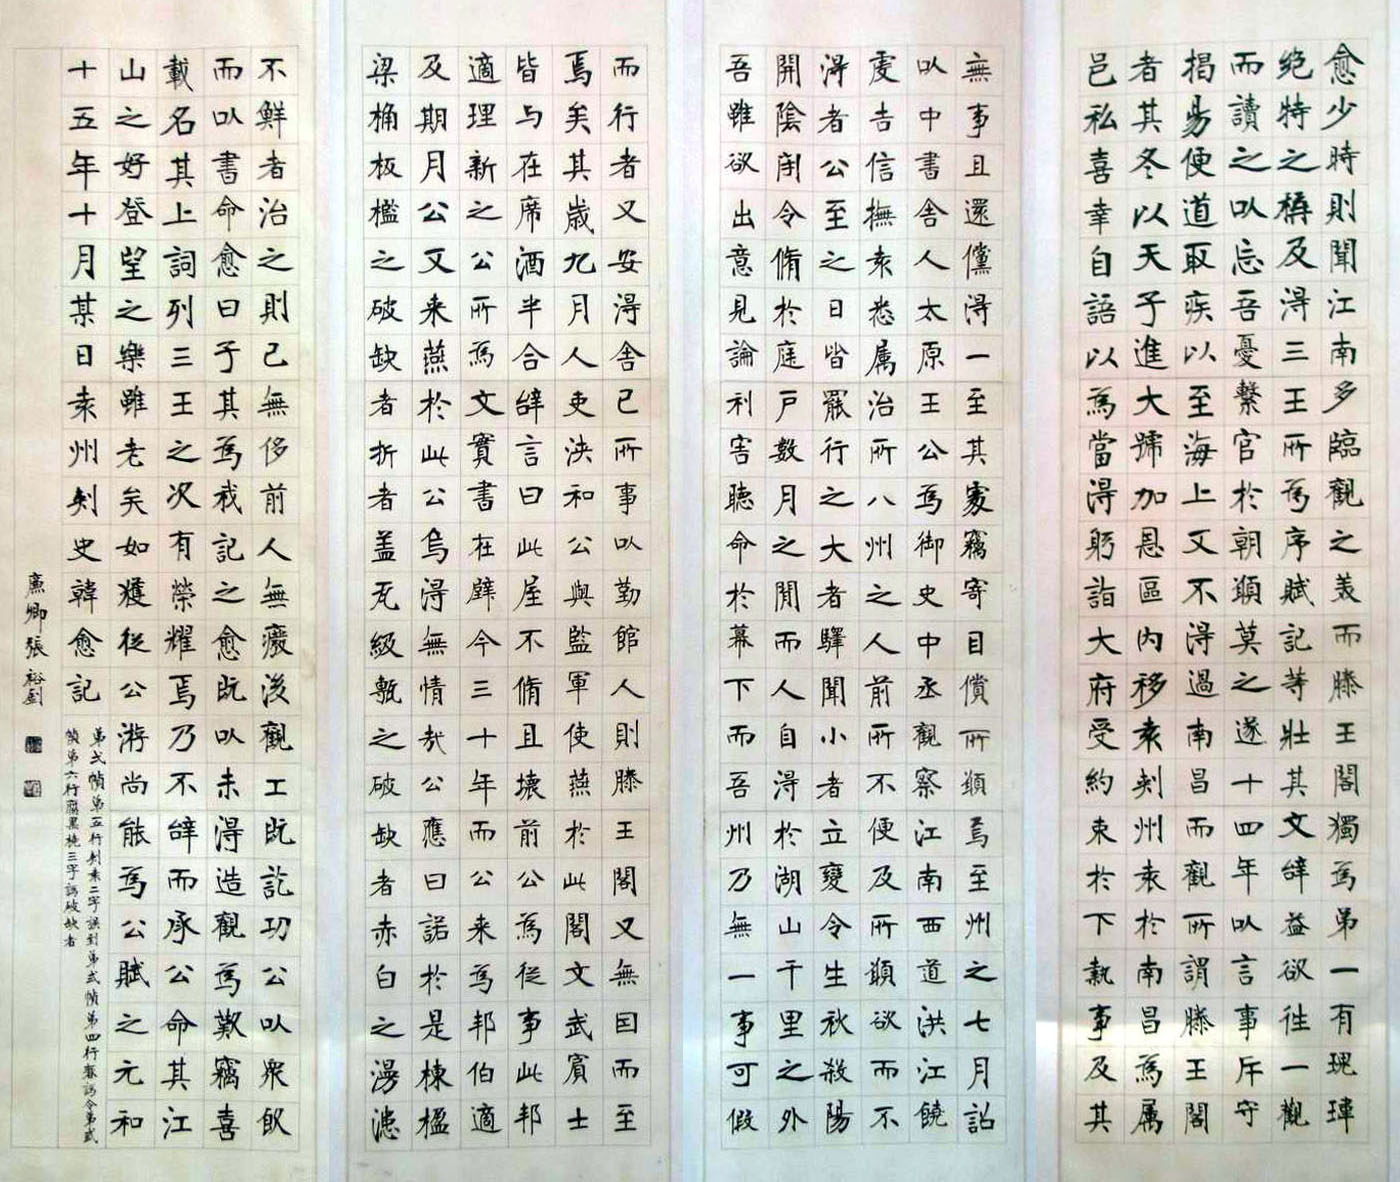 愈少時則聞江南多臨觀之美而滕王閣獨爲弟一有瑰瑋
絕特之稱及得三王所爲序賦記等壯其文辭益欲往一觀
而讀之以忘吾憂繫官於朝願莫之遂十四年以言事斥守
揭昜便道取疾以至海上又不得過南昌而觀所謂滕王閣
者其冬以天子進大號加恩區內移袁刺州袁於南昌爲屬
邑私喜幸自語以爲當得躬詣大府受約束於下執事及其
無事且還儻得一至其處竊寄目償所願焉至州之七月詔
以中書舍人太原王公爲御史中丞觀察江南西道洪江饒
虔吉信撫袁悉屬治所八州之人前所不便及所願欲而不
得者公至之日皆罷行之大者驛聞小者立變令生秋殺陽
開陰閉令脩於庭戶數月之閒而人自得於湖山千里之外
吾雖欲出意見論利害聽命於幕下而吾州乃無一事可假
而行者又安得舍己所事以勤館人則滕王閣又無因而至
焉矣其歲九月人吏浹和公與監軍使燕於此閣文武賓士
皆与在席酒半合辭言曰此屋不脩且壞前公爲從事此邦
適理新之公所爲文實書在壁今三十年而公來爲邦伯適
及期月公又來燕於此公烏得無情哉公應曰諾於是棟楹
梁桷板檻之破缺者折者蓋瓦級甎之破缺者赤白之漫漶
不鮮者治之則已無侈前人無癈後觀工既訖功公以衆飲
而以書命愈曰子其爲我記之愈既以未得造觀爲歎竊喜
載名其上詞列三王之次有榮耀焉乃不辭而承公命其江
山之好登望之樂雖老矣如獲從公游尚能爲公賦之元和
十五年十月某日袁州刺史韓愈記
弟弍幀弟五行刺袁二字誤到弟弍幀弟四行春誤令弟弍
幀弟六行腐黑撓三字誤破缺者
廉卿張裕釗